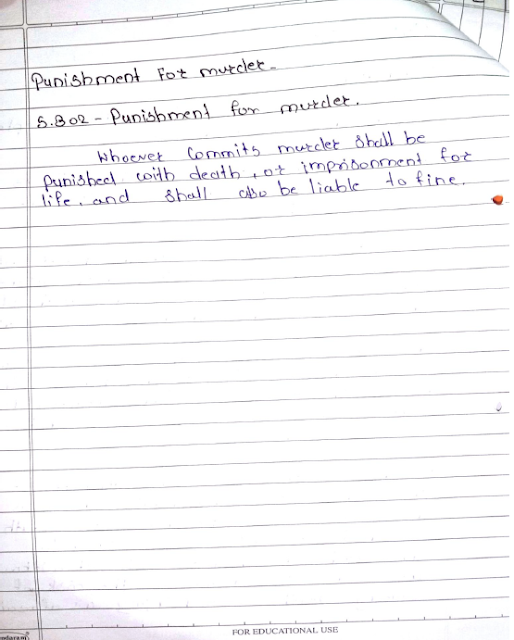 Punishment For murder.
S.302 - Punishment for murder.
Whoever Commits murder shall be
punished with death, or imprisonment for
life, and shall also be liable to fine.
FOR EDUCATIONAL USE